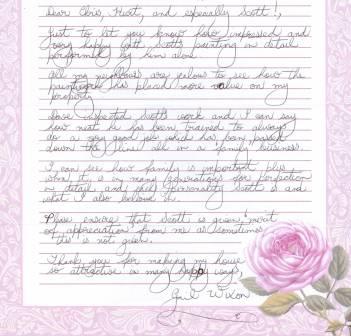 Dear Chris, Kurt, and especially Scott!,
Just to let you know how impressed and
very happy with Scott's painting in detail
performed by him alone.
All my neighbors are jealous to see how the
paintwork has placed more value on my
property.
Dave inspected Scott's work and I can say
how neat he has been trained to always
do a very good job which has been passed
down the line all in a "family" business.
I can see how family is important plus
work it, is in many generations for perfection
in detail, and personality Scott is and
what I also believe in.
Please ensure that Scott is given most
of appreciation from me as sometimes
this is not given.
Thank you for making my house
so attractive in many happy ways,
Gail Wixon